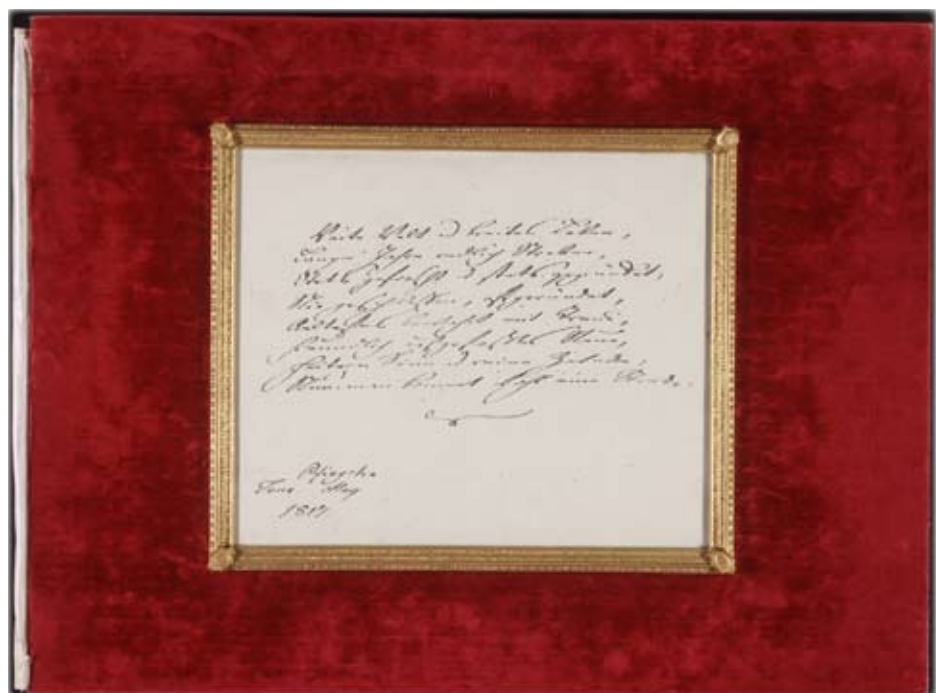 Weite Welt u breites Leben,
Langer Jahre redlich Streben,
Stets geforscht u stets gegründet,
Nie geschlossen, oft geründet,
Aeltestes bewahrt mit Treue,
Freundlich aufgefasstes Neue,
Heitern Sinn u reine Zwecke:
Nun man kommt wohl eine Strecke.
Jena May
1817